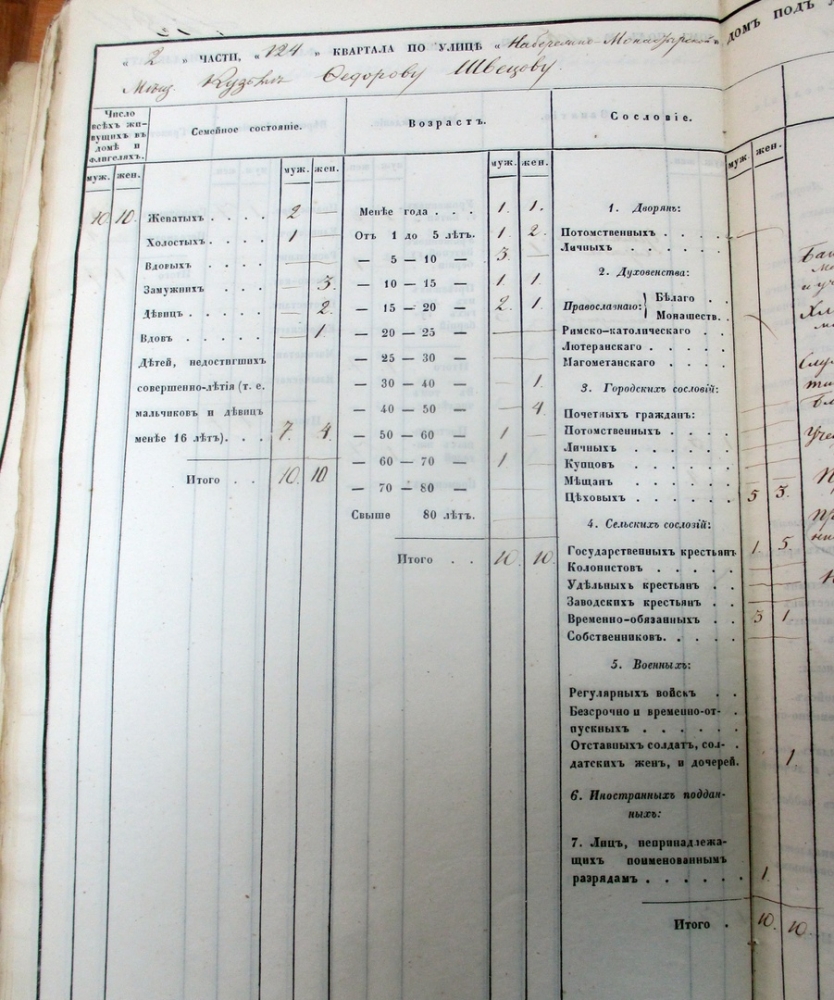 „ 2 „ ЧАСТИ, „ 124 „ КВАРТАЛА ПО УЛИЦѢ „ Набережно-Монастырской „ ДОМЪ ПОДЪ
Мѣщ. Кузьмѣ Ѳедорову Швецову.
Число всѣхъ живущихъ въ домѣ и флигеляхъ.
Семейное состояніе.
Возрастъ.
Сословіе.
муж. жен. муж. жен. муж. жен. муж. жен.
10. 10.
Жеватыхъ . . . . 2 —
Холостыхъ . . . . 1 —
Вдовыхъ . . . . — —
Замужнихъ . . . . 3.
Дѣвиц . . . . . — 2.
Вдовъ . . . . . — 1.
Дѣтей, недостигшихъ
совершенно-лѣтія (т. е.
мальчиковъ и дѣвицъ
менѣе 16 лѣтъ). . . 7. 4.
Итого . . 10. 10
Менѣе года . . . 1. 1.
Отъ 1 до 5 лѣтъ. 1. 2.
— 5 — 10 — 3. —
— 10 — 15 — 1. 1.
— 15 — 20 — 2. 1.
— 20 — 25 — — —
— 25 — 30 — — —
— 30 — 40 — — 1.
— 40 — 50 — — 4.
— 50 — 60 — 1 —
— 60 — 70 — 1. —
— 70 — 80 — — —
Свыше 80 лѣтъ.
Итого . . 10. 10.
1. Дворянъ:
Потомственныхъ . . . . —
Личныхъ . . . . . .
2. Духовенства:
Православнаго: { Бѣлаго . .
Монашеств. .
Римско-католическаго . .
Лютеранскаго . . . . .
Магометанскаго . . . .
3. Городскихъ сословій:
Почетныхъ гражданъ:
Потомственныхъ . . . .
Личныхъ . . . . . .
Купцовъ . . . . . .
Мѣщанъ . . . . . .
Цѣховыхъ . . . . . 5 3.
4. Сельскихъ сословій:
Государственныхъ крестьянъ 1. 5.
Колонистовъ . . . . .
Удѣльныхъ крестьянъ . .
Заводскихъ крестьянъ . .
Временно-обязанныхъ . . 3 1
Собственниковъ. . . . .
5. Военныхъ:
Регулярныхъ войскъ . .
Безсрочно и временно-от-
пускныхъ . . . . . .
Отставныхъ солдатъ, сол-
датскихъ женъ, и дочерей. 1.
6. Иностранныхъ поддан-
ныхъ:
7. Лицъ, непринадлежа-
щихъ поименованнымъ
разрядамъ . . . . . . 1.
Итого . 10. 10.